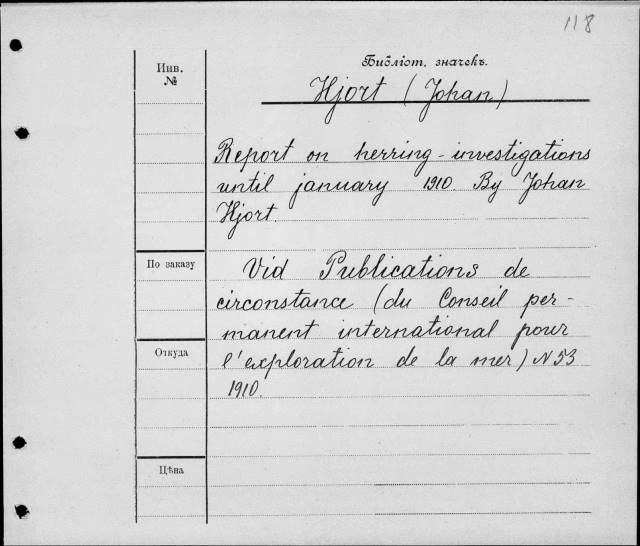 118
Инв.
№
Библіот. значекъ.
Hjort (Johan)
Report on herring-investigations
until january 1910. By Johan
Hjort.
По заказу
Vid Publications de
circonstance (du Conseil per-
manent international pour
Откуда
l'exploration de la mer) N 53
1910.
Цѣна